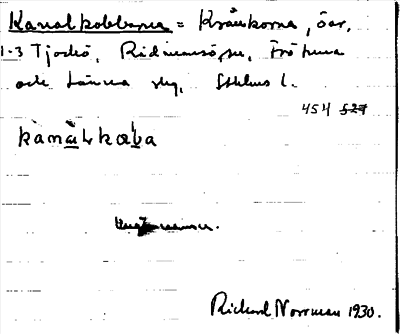 Kanalkobbarna = Kråkorna, öar,
1-3 Tjockö, Rådmansö, Frötuna
och Länna slg, Sthlms l.
454 527
kanàlkɑba
Richard Norrman 1930.